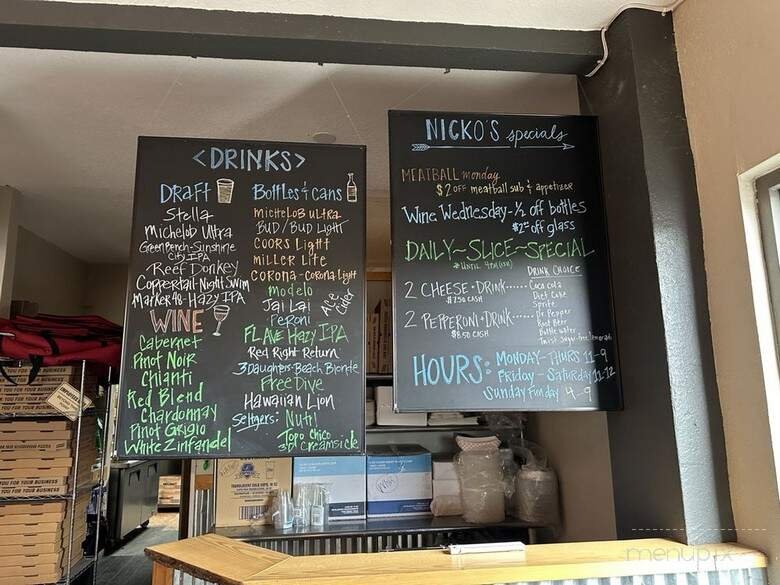 <DRINKS>
DRAFT
Stella
Michelob Ultra
Green Bench-Sunshine
City IPA
Reef Donkey
Coppertail Night Swim
Marker 48-Hazy IPA
WINE
Cabernet
Pinot Noir
Chianti
Red Blend
Chardonnay
Pinot Grigio
White Zinfandel
Bottles & cans
Michelob Ultra
BUD/BUD LIGHT
COORS Light
MILLER Lite
CORONA-CORONA Light
Modelo
Jai Lai
Peroni
Ace
Cider
FLAVE Hazy IPA
Red Right Return
3 Daughters-Beach Blonde
Free Dive
Hawaiian Lion
Seltzers: Nutrl
Topo Chico
3D Creamsicle
NICKO'S specials
MEATBALL monday
$2 OFF meatball sub & appetizer
Wine Wednesday-½ off bottles
$2 off glass
DAILY~SLICE~SPECIAL
DRINK CHOICE
2 CHEESE+DRINK......
$7.50 CASH
2 PEPPERONI+DRINK.....
$8.50 CASH
Coca cola
Diet Coke
Sprite
Dr. Pepper
Root Beer
Bottle water
HOURS: MONDAY-THURS 11-9
FRIDAY-SATURDAY 11-12
SUNDAY FUNDAY 4-9
YOU FOR YOUR BUSINESS
FOR YOUR BUSINESS
menupix